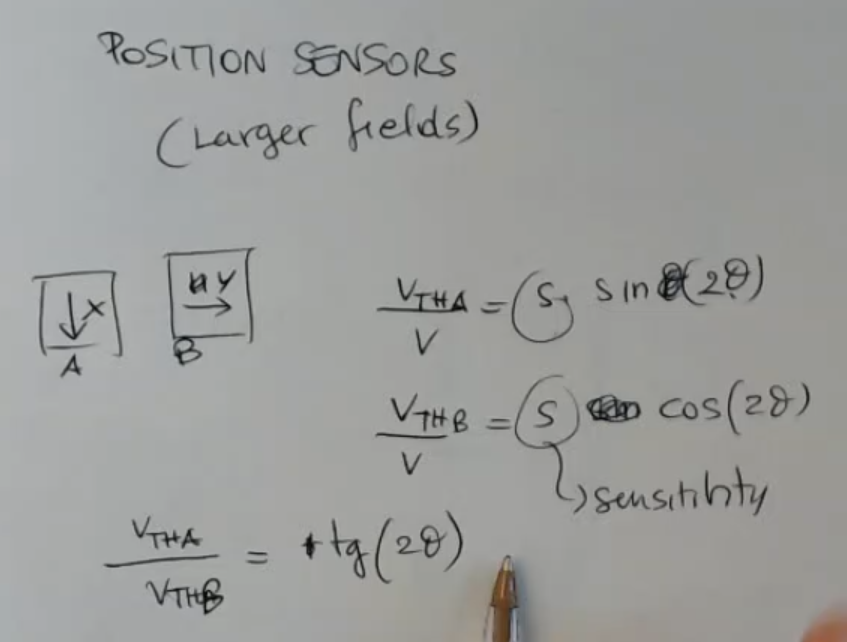 POSITION SENSORS
(Larger fields)
X
A
y
B
V_THA / V = S sin(2θ)
V_THB / V = S cos(2θ)
sensitibity
V_THA / V_THB = tg(2θ)